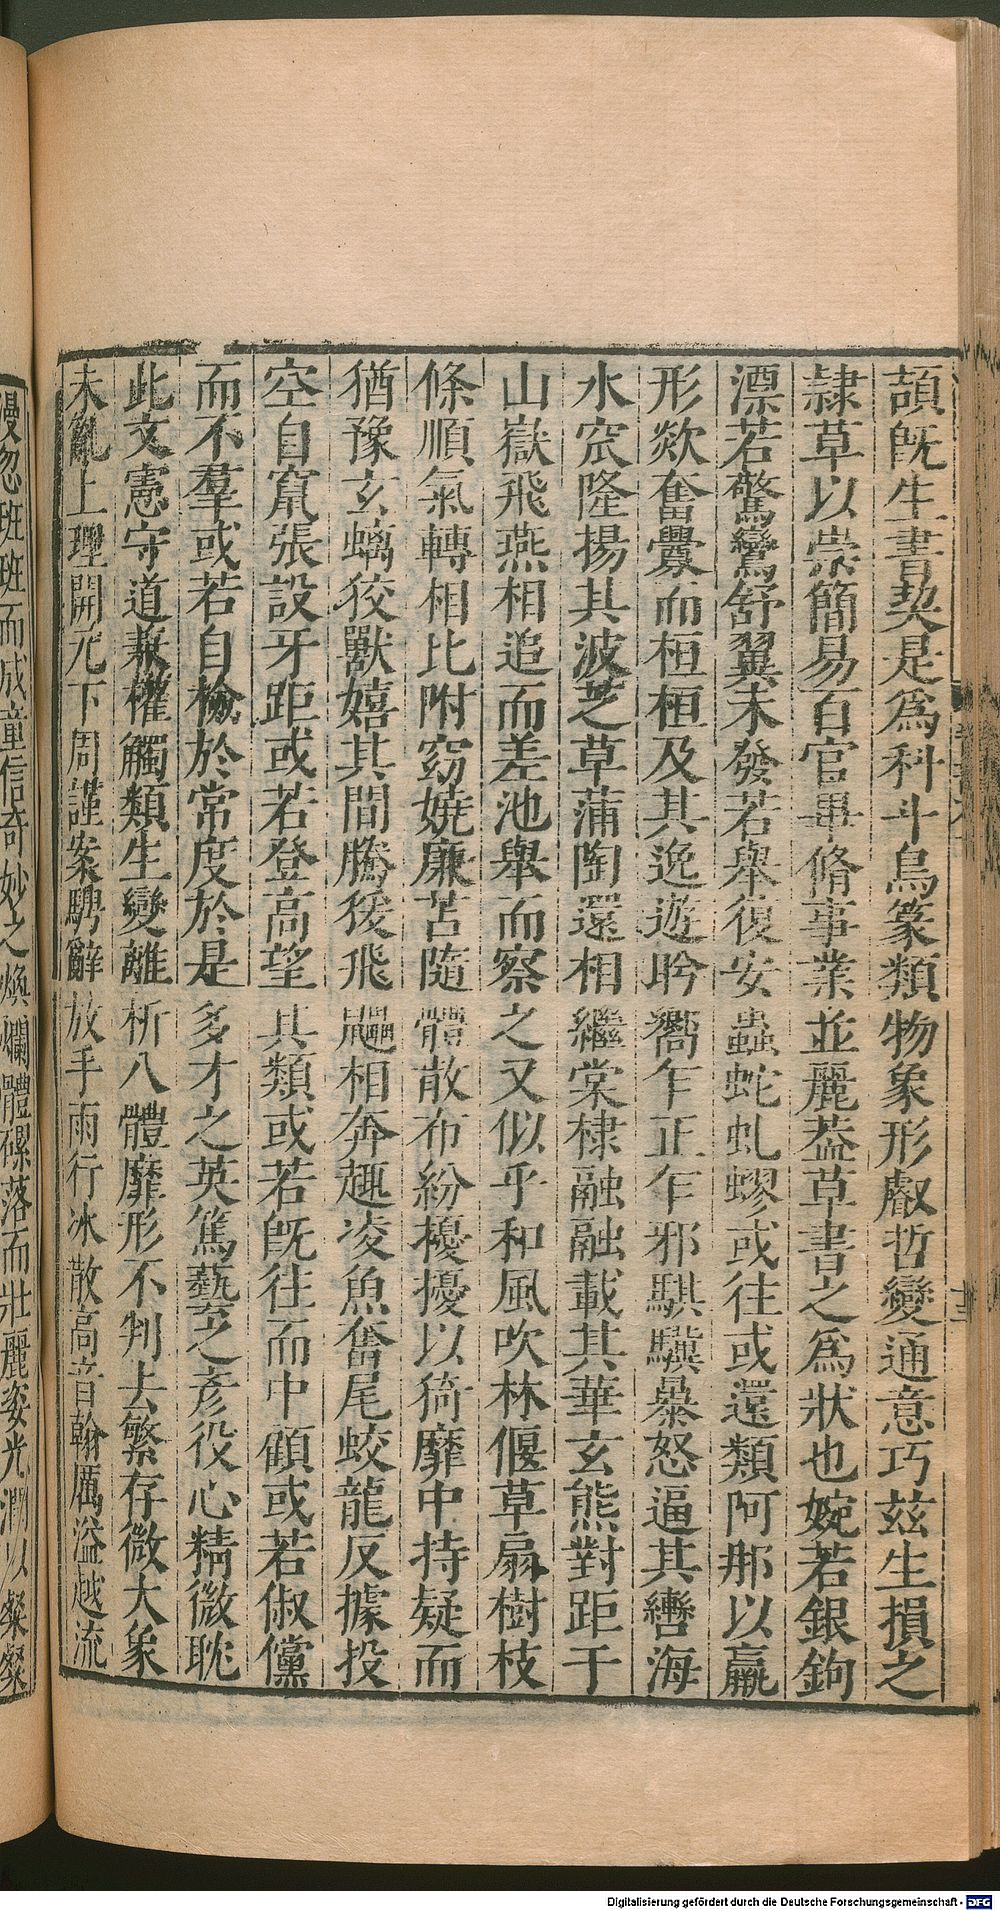 頡既生書契是爲科斗鳥篆類物象形叡哲變通意巧茲生損之
隷草以崇簡易百官畢脩事業並麗葢草書之爲狀也婉若銀鉤
漂若驚鸞舒翼未發若舉復安蟲蛇虬蟉或往或還類阿那以羸
形欻奮釁而桓桓及其逸遊盻嚮乍正乍邪騏驥暴怒逼其轡海
水窊隆揚其波芝草蒲陶還相繼棠棣融融載其華玄熊對距于
山嶽飛燕相追而差池舉而察之又似乎和風吹林偃草扇樹枝
條順氣轉相比附窈嬈廉苫隨體散布紛擾擾以猗靡中持疑而
猶豫玄螭狡獸嬉其間騰猨飛鼺相奔趣凌魚奮尾蛟龍反據投
空自竄張設牙距或若登高望其類或若既往而中顧或若俶儻
而不羣或若自檢於常度於是多才之英篤藝之彥役心精微耽
此文憲守道兼權觸類生變離析八體靡形不判去繁存微大象
未亂上理開元下周謹案騁辭放手雨行冰散高音翰厲溢越流
漫忽班班而成章信奇妙之煥爛體磥落而壯麗姿光潤以粲粲
Digitalisierung gefördert durch die Deutsche Forschungsgemeinschaft - DFG